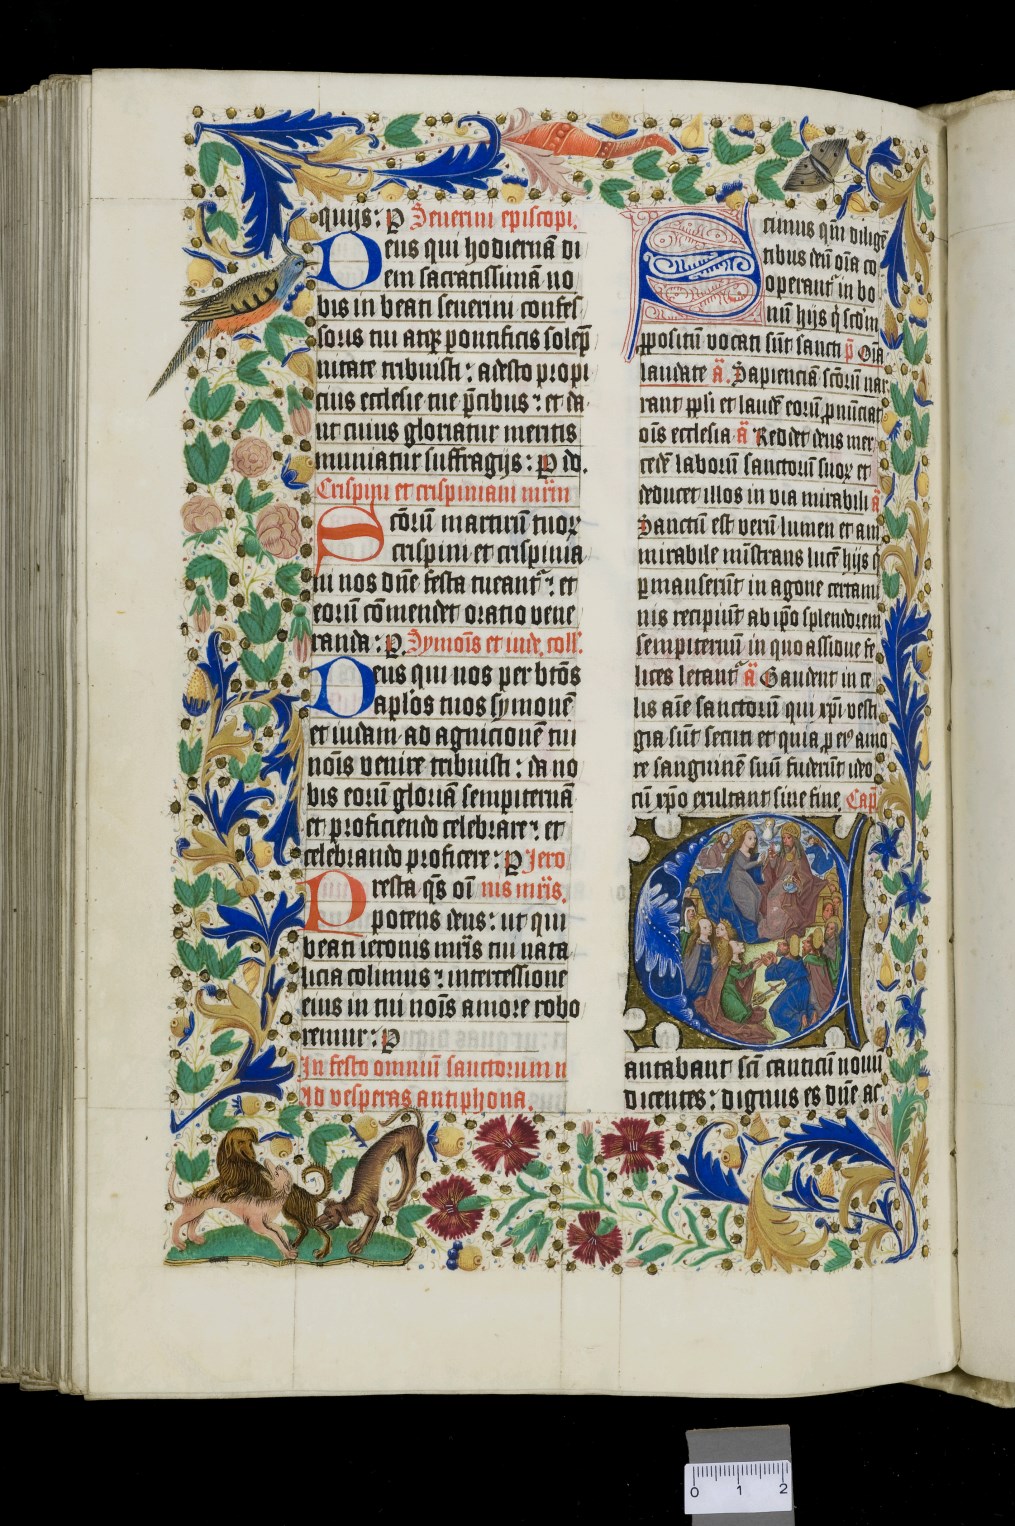 quijs: P Seuerini episcopi.
Deus qui hodiernā di
em sacratissimā no
bis in beati seuerini confes
soris tui atqꝫ pontificis solēp
nitate tribuisti: adesto propi
cius ecclesie tue p̄cibus: et da
ut cuius gloriatur meritis
muniatur suffragijs: P do.
Crispini et crispiniani mr̄m
Scōrum martirū tuoꝝ
crispini et crispinia
ni nos dn̄e festa tueant᷑: et
eorū cōmendet oratio vene
randa: P. Symōis et iude, coll.
Deus qui nos per btōs
apl̄os tuos symonē
et iudam ad agnicionē tui
nōis venire tribuisti: da no
bis eorū gloriā sempiternā
et proficiendo celebrare: et
celebrando proficere: P Jero
Presta qs̄ om̄ nis mr̄is.
potens deus: ut qui
beati ieronis mr̄is tui nata
licia colimus: intercessione
eius in tui nōis amore robo
remur: P
In festo omniū sanctorum
Ad vesperas antiphona.
Scimus qm̄ diligē
tibus deū oīa co
operant᷑ in bo
nū hijs q̄ scd̄m
ꝓpositū vocati sūt sancti p̄ Oīa
laudate ā. Sapienciā scōrū nar
rant ppl̄i et laudē eorū ꝓnūciat
oīs ecclesia ā Reddet deus mer
cedē laborū sanctorū suoꝝ et
deducet illos in via mirabili ā
Sanctū est verū lumen et am
mirabile mīstrans lucē hijs q̄
ꝑmanserūt in agone certami
nis recipiūt ab ip̄o splendorem
sempiternū in quo assidue fe
lices letant᷑ ā Gaudent in ce
lis aīe sanctorū qui xp̄i vesti
gia sūt secuti et quia ꝓ eiꝰ amo
re sanguinē suū fuderūt ideo
cū xp̄o exultant sine fine. Cap̄
Cantabant sc̄i canticū nouū
dicentes: dignus es dn̄e ac
0 1 2